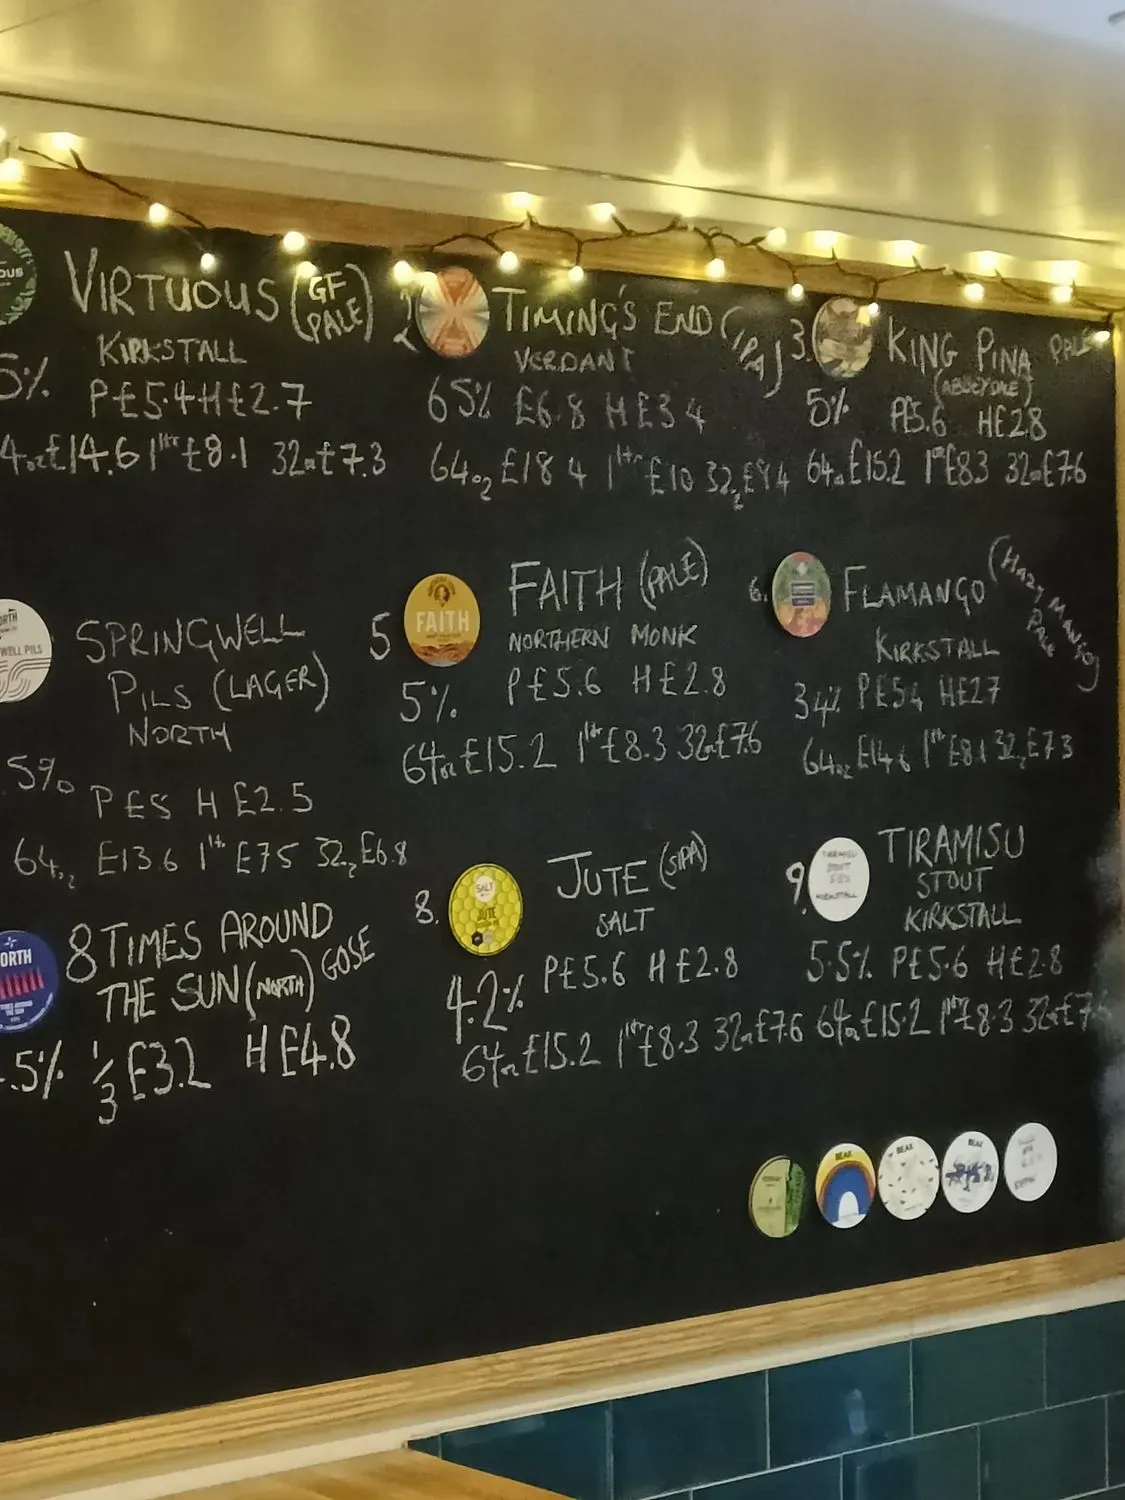 VIRTUOUS (GF PALE)
KIRKSTALL
5%
P£5.4 H£2.7
4oz £14.6 1ltr £8.1 32oz £7.3
2 TIMING'S END (IPA)
VERDANT
65% £6.8 H£3 4
64oz £18 4 1ltr £10 32oz £9 4
3. KING PINA PALE
5% P£5.6 H£2.8
64oz £15.2 1ltr £8.3 32oz £7.6
ORTH
WELL PILS
SPRINGWELL
PILS (LAGER)
NORTH
.5%
P£5 H£2.5
64oz £13.6 1ltr £7 5 32oz £6.8
5 FAITH FAITH (PALE)
NORTHERN MONK
5% P£5.6 H£2.8
64oz £15.2 1ltr £8.3 32oz £7.6
6. FLAMANGO (HAZY MANGO PALE)
KIRKSTALL
34% P£5 4 H£2 7
64oz £14 6 1ltr £8.1 32oz £7 3
ORTH
8 TIMES AROUND
THE SUN (NORTH) GOSE
.5% 1/3 £3.2 H£4.8
8. SALT JUTE JUTE (SIPA)
SALT
4.2% P£5.6 H£2.8
64oz £15.2 1ltr £8.3 32oz £7.6
9. TIRAMISU STOUT 5.5% KIRKSTALL
TIRAMISU
STOUT
KIRKSTALL
5.5% P£5.6 H£2.8
64oz £15.2 1ltr £8.3 32oz £7.6
BEAK
BEAK
BEAK